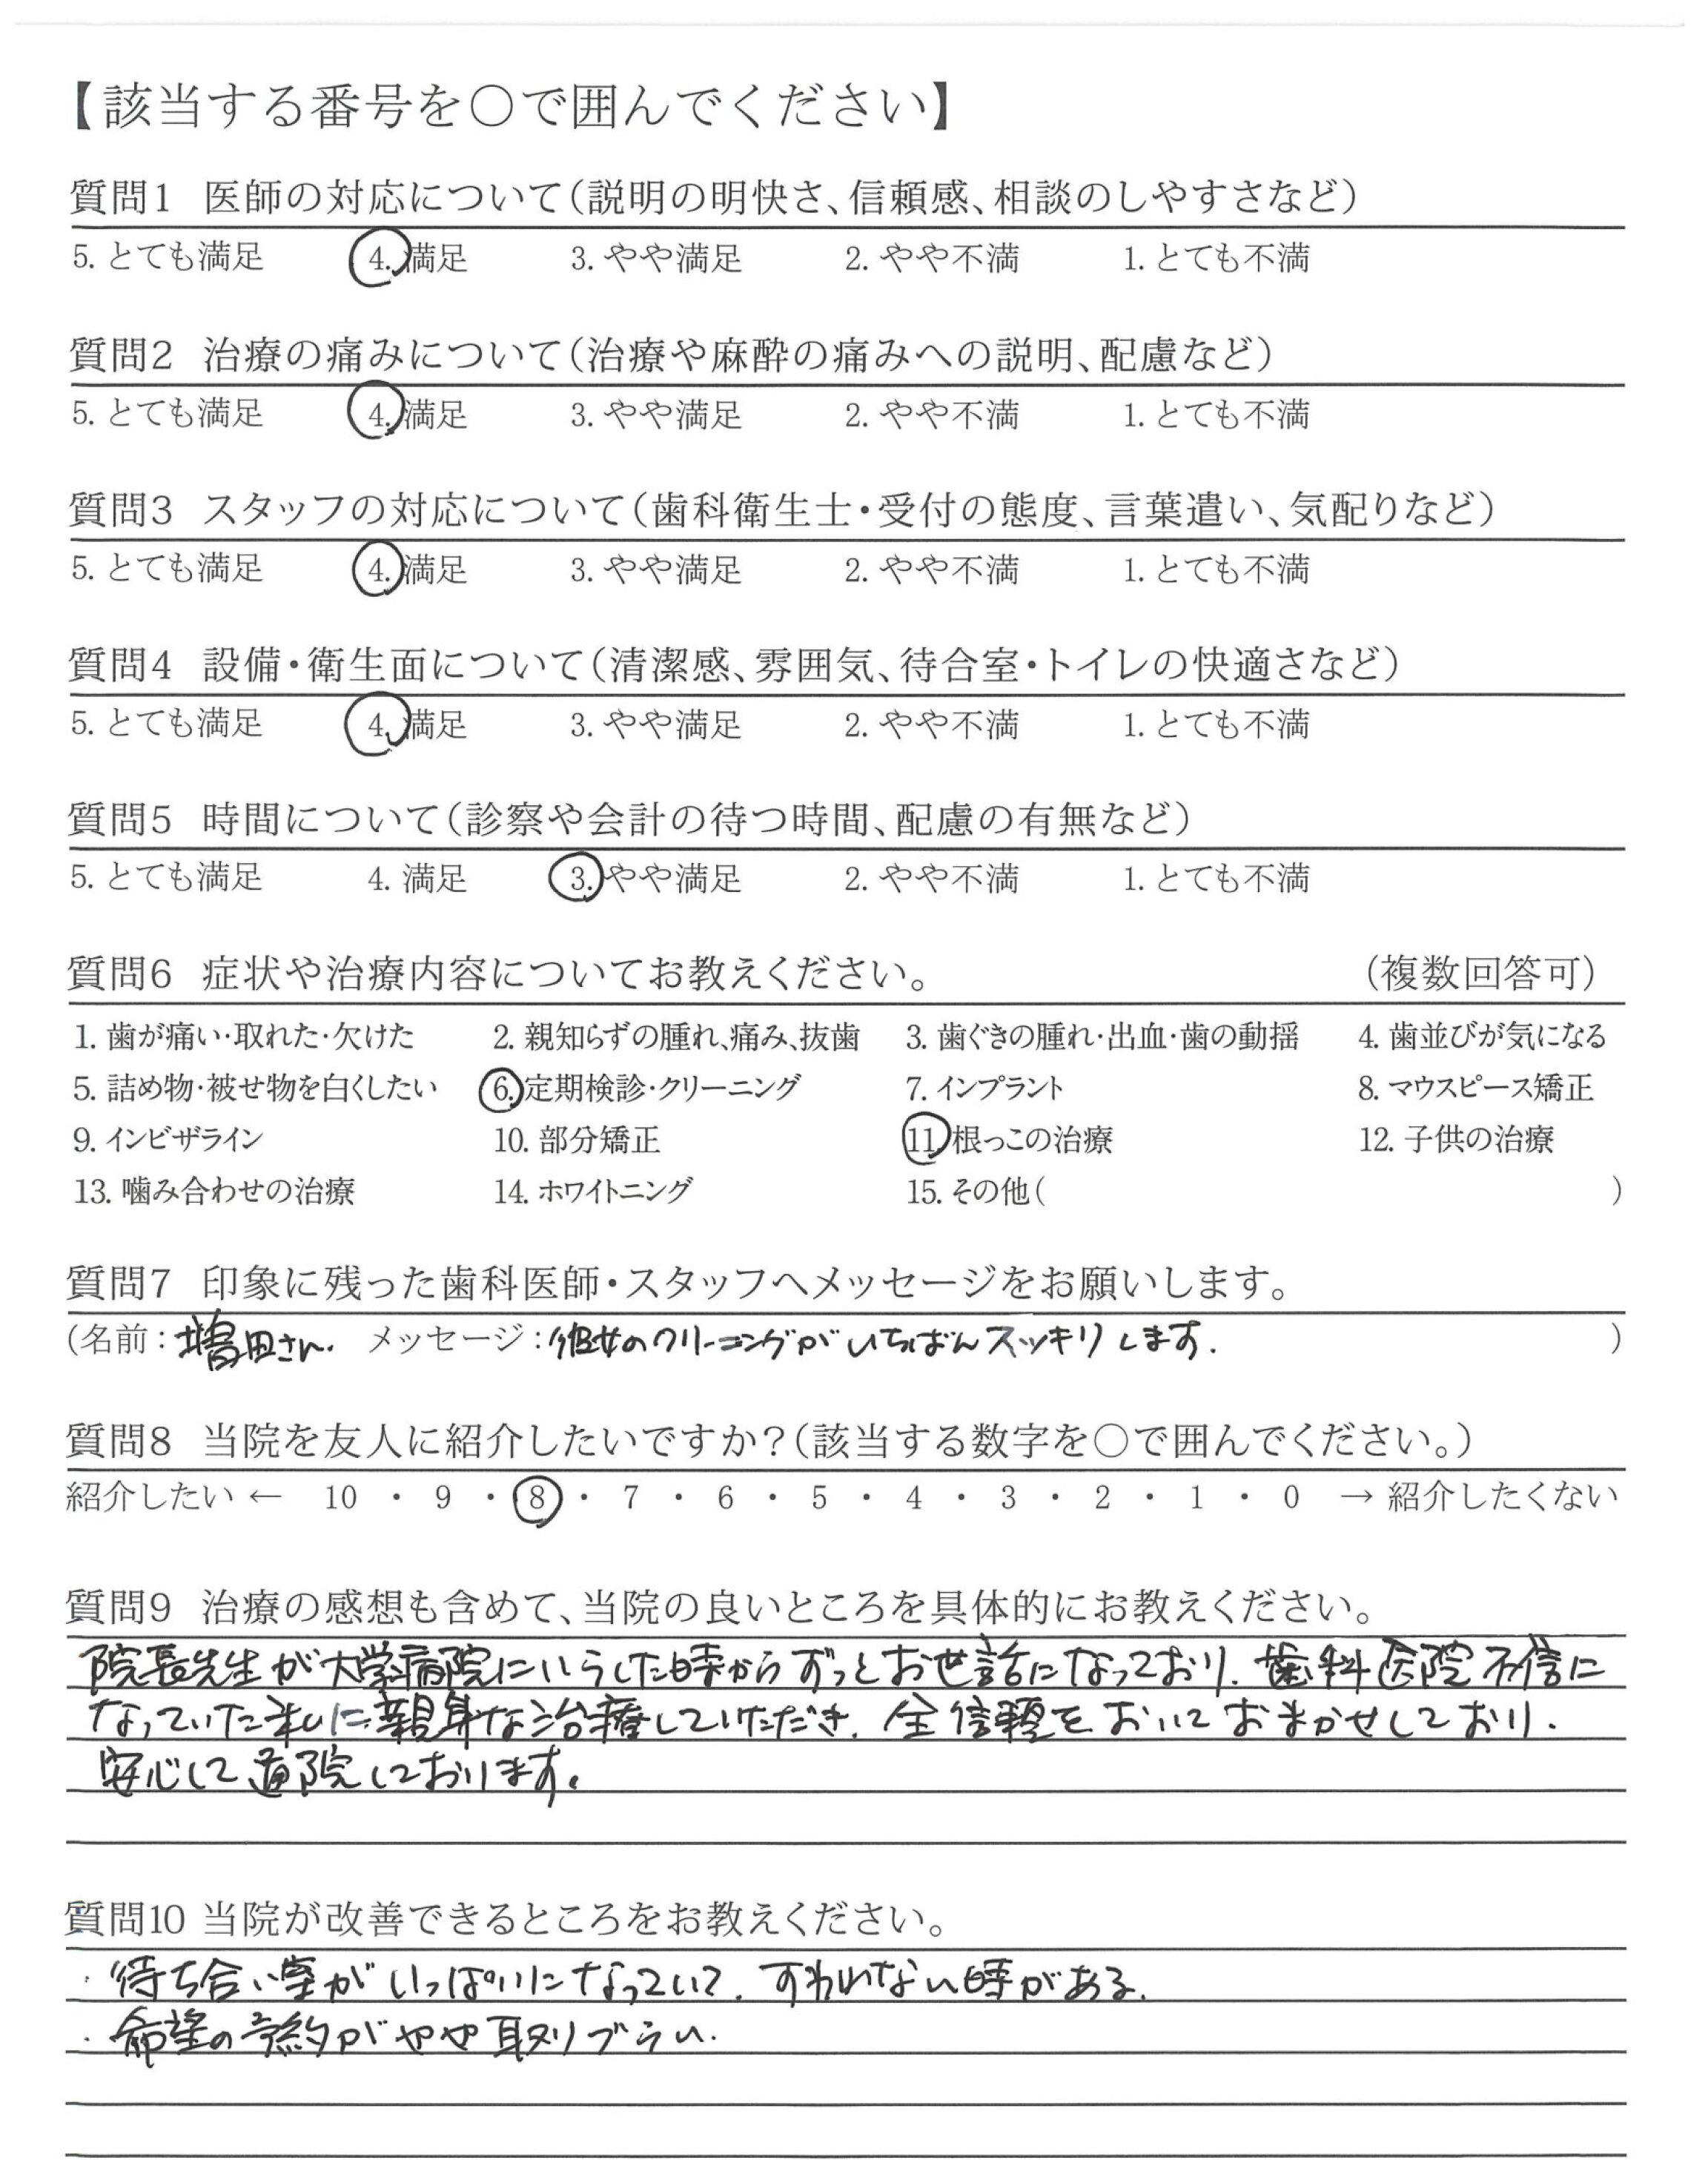 【該当する番号を○で囲んでください】
質問1 医師の対応について(説明の明快さ、信頼感、相談のしやすさなど)
5. とても満足 4. 満足 3. やや満足 2. やや不満 1. とても不満
質問2 治療の痛みについて(治療や麻酔の痛みへの説明、配慮など)
5. とても満足 4. 満足 3. やや満足 2. やや不満 1. とても不満
質問3 スタッフの対応について(歯科衛生士・受付の態度、言葉遣い、気配りなど)
5. とても満足 4. 満足 3. やや満足 2. やや不満 1. とても不満
質問4 設備・衛生面について(清潔感、雰囲気、待合室・トイレの快適さなど)
5. とても満足 4. 満足 3. やや満足 2. やや不満 1. とても不満
質問5 時間について(診察や会計の待つ時間、配慮の有無など)
5. とても満足 4. 満足 3. やや満足 2. やや不満 1. とても不満
質問6 症状や治療内容についてお教えください。 (複数回答可)
1. 歯が痛い・取れた・欠けた 2. 親知らずの腫れ、痛み、抜歯 3. 歯ぐきの腫れ・出血・歯の動揺 4. 歯並びが気になる
5. 詰め物・被せ物を白くしたい 6. 定期検診・クリーニング 7. インプラント 8. マウスピース矯正
9. インビザライン 10. 部分矯正 11. 根っこの治療 12. 子供の治療
13. 噛み合わせの治療 14. ホワイトニング 15. その他( )
質問7 印象に残った歯科医師・スタッフへメッセージをお願いします。
(名前:増田さん. メッセージ:彼女のクリーニングがいちばんスッキリします. )
質問8 当院を友人に紹介したいですか?(該当する数字を○で囲んでください。)
紹介したい ← 10 ・ 9 ・ 8 ・ 7 ・ 6 ・ 5 ・ 4 ・ 3 ・ 2 ・ 1 ・ 0 → 紹介したくない
質問9 治療の感想も含めて、当院の良いところを具体的にお教えください。
院長先生が大学病院にいらした時からずっとお世話になっており. 歯科医院不信に
なっていた私に親身な治療していただき. 全信頼をおいておまかせしており.
安心して通院しております。
質問10 当院が改善できるところをお教えください。
・待ち合い室がいっぱいになっていて. すわれない時がある.
・希望の予約がやや取りづらい.